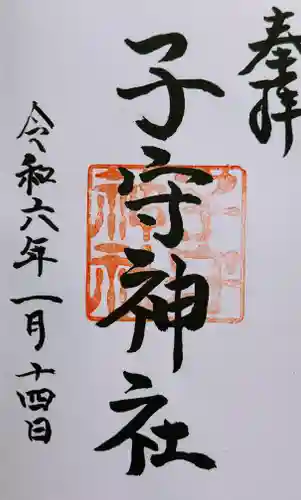 奉拝
子守神社
令和六年一月十四日